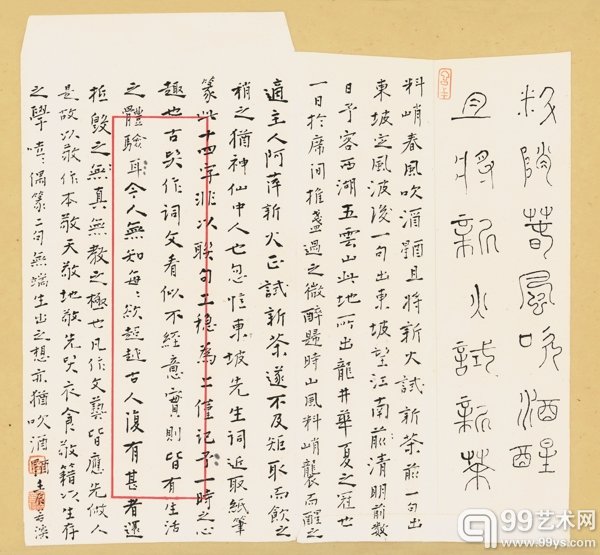 料峭春風吹酒醒
且將新火試新茶
料峭春風吹酒醒且將新火試新茶前一句出
東坡定風波後一句出東坡望江南前清明前數
日予客西湖五雲山此地所出龍井華夏之冠也
一日於席間推盞過之微醉歸時山風料峭襲而醒之
適主人阿萍新火正試新茶遂不及矩取而飲之
稍之猶神仙中人也忽憶東坡先生詞近取紙筆
篆此十四字非以聯句工穩為上僅記予一時之心
趣也古賢作詞文看似不經意實則皆有生活
之體驗耳今人無知每々欲超越古人復有甚者遂
詆毀之無真無教之極也凡作文藝皆應先做人
是故以敬作本敬天敬地敬先賢衣食敬籍以生存
之學嘻々偶篆二句無端生出之想亦猶吹酒醒
99艺术网
www.99ys.com